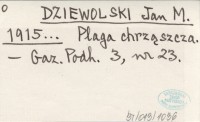 0
DZIEWOLSKI Jan M.
1915... Plaga chrząszcza.
– Gaz. Podh. 3, nr 23.